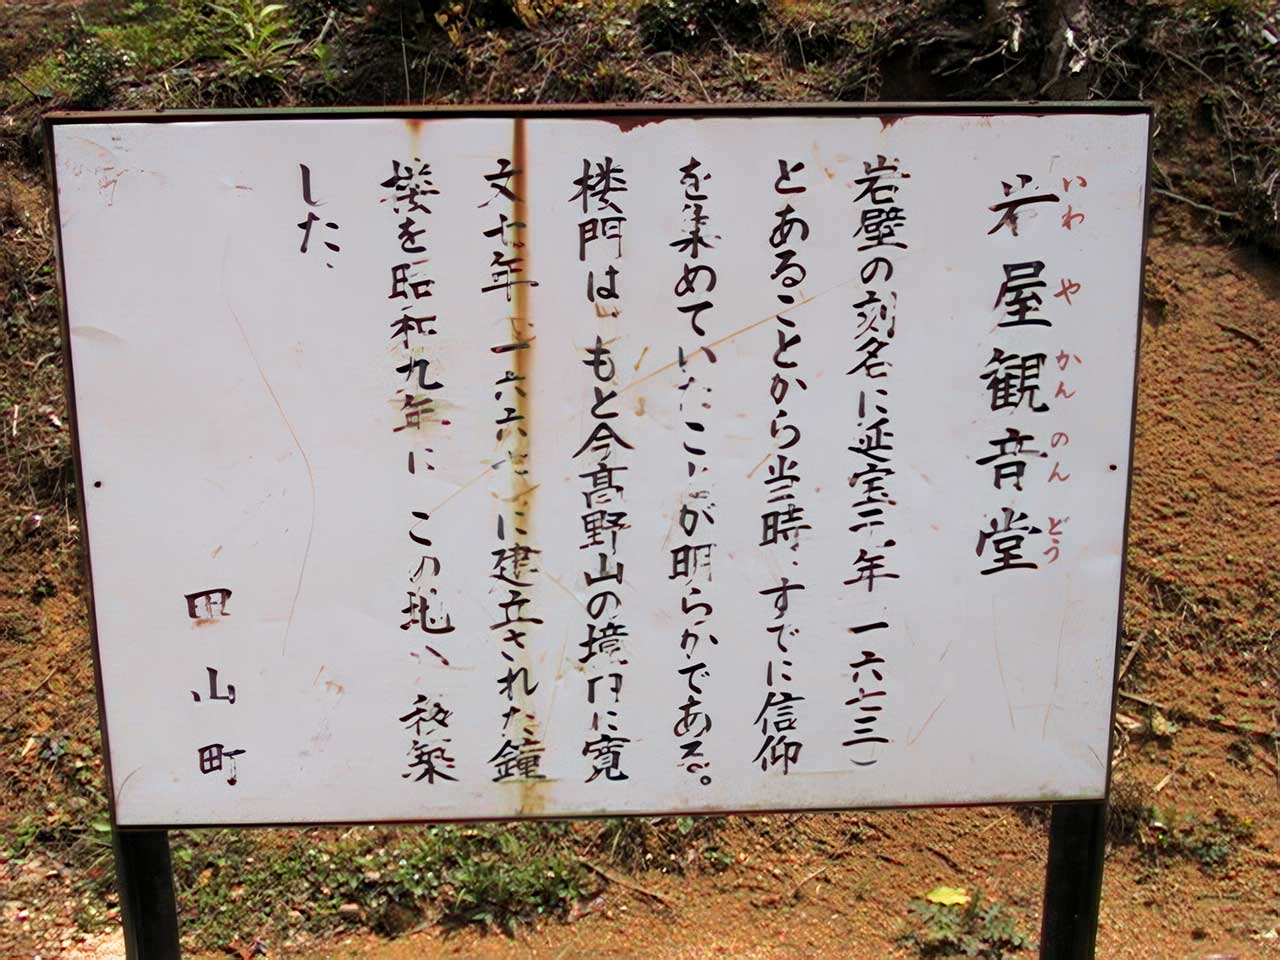 岩屋観音堂
いわ や かん のん どう
岩壁の刻名に延宝元年 一六七三)
とあることから当時、すでに信仰
を集めていたことが明らかである。
楼門は もと今高野山の境内に寛
文七年(一六六七)に建立された鐘
楼を昭和九年に この地へ 移築
した、
甲山町